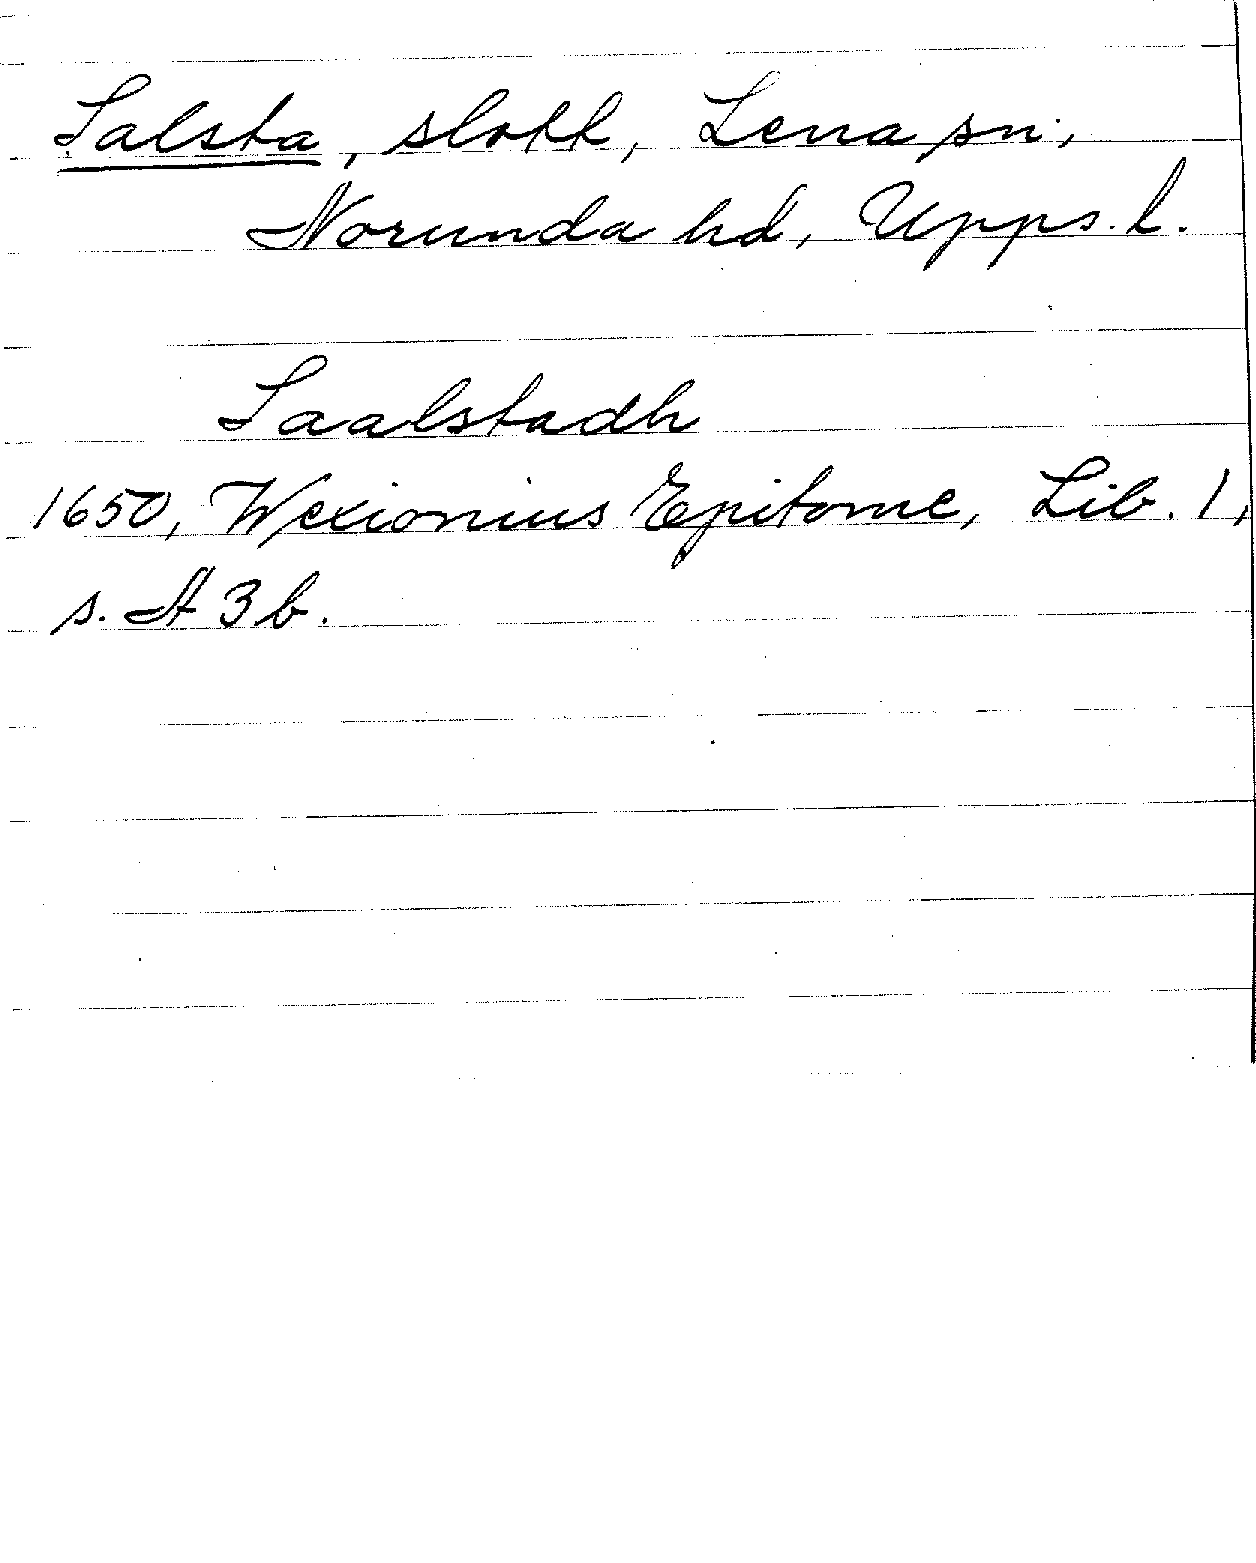 Salsta, slott, Lena sn.,
Norunda hd, Upps. l.
Saalstadh
1650, Wexionius Epitome, Lib. 1,
s. A 3 b.